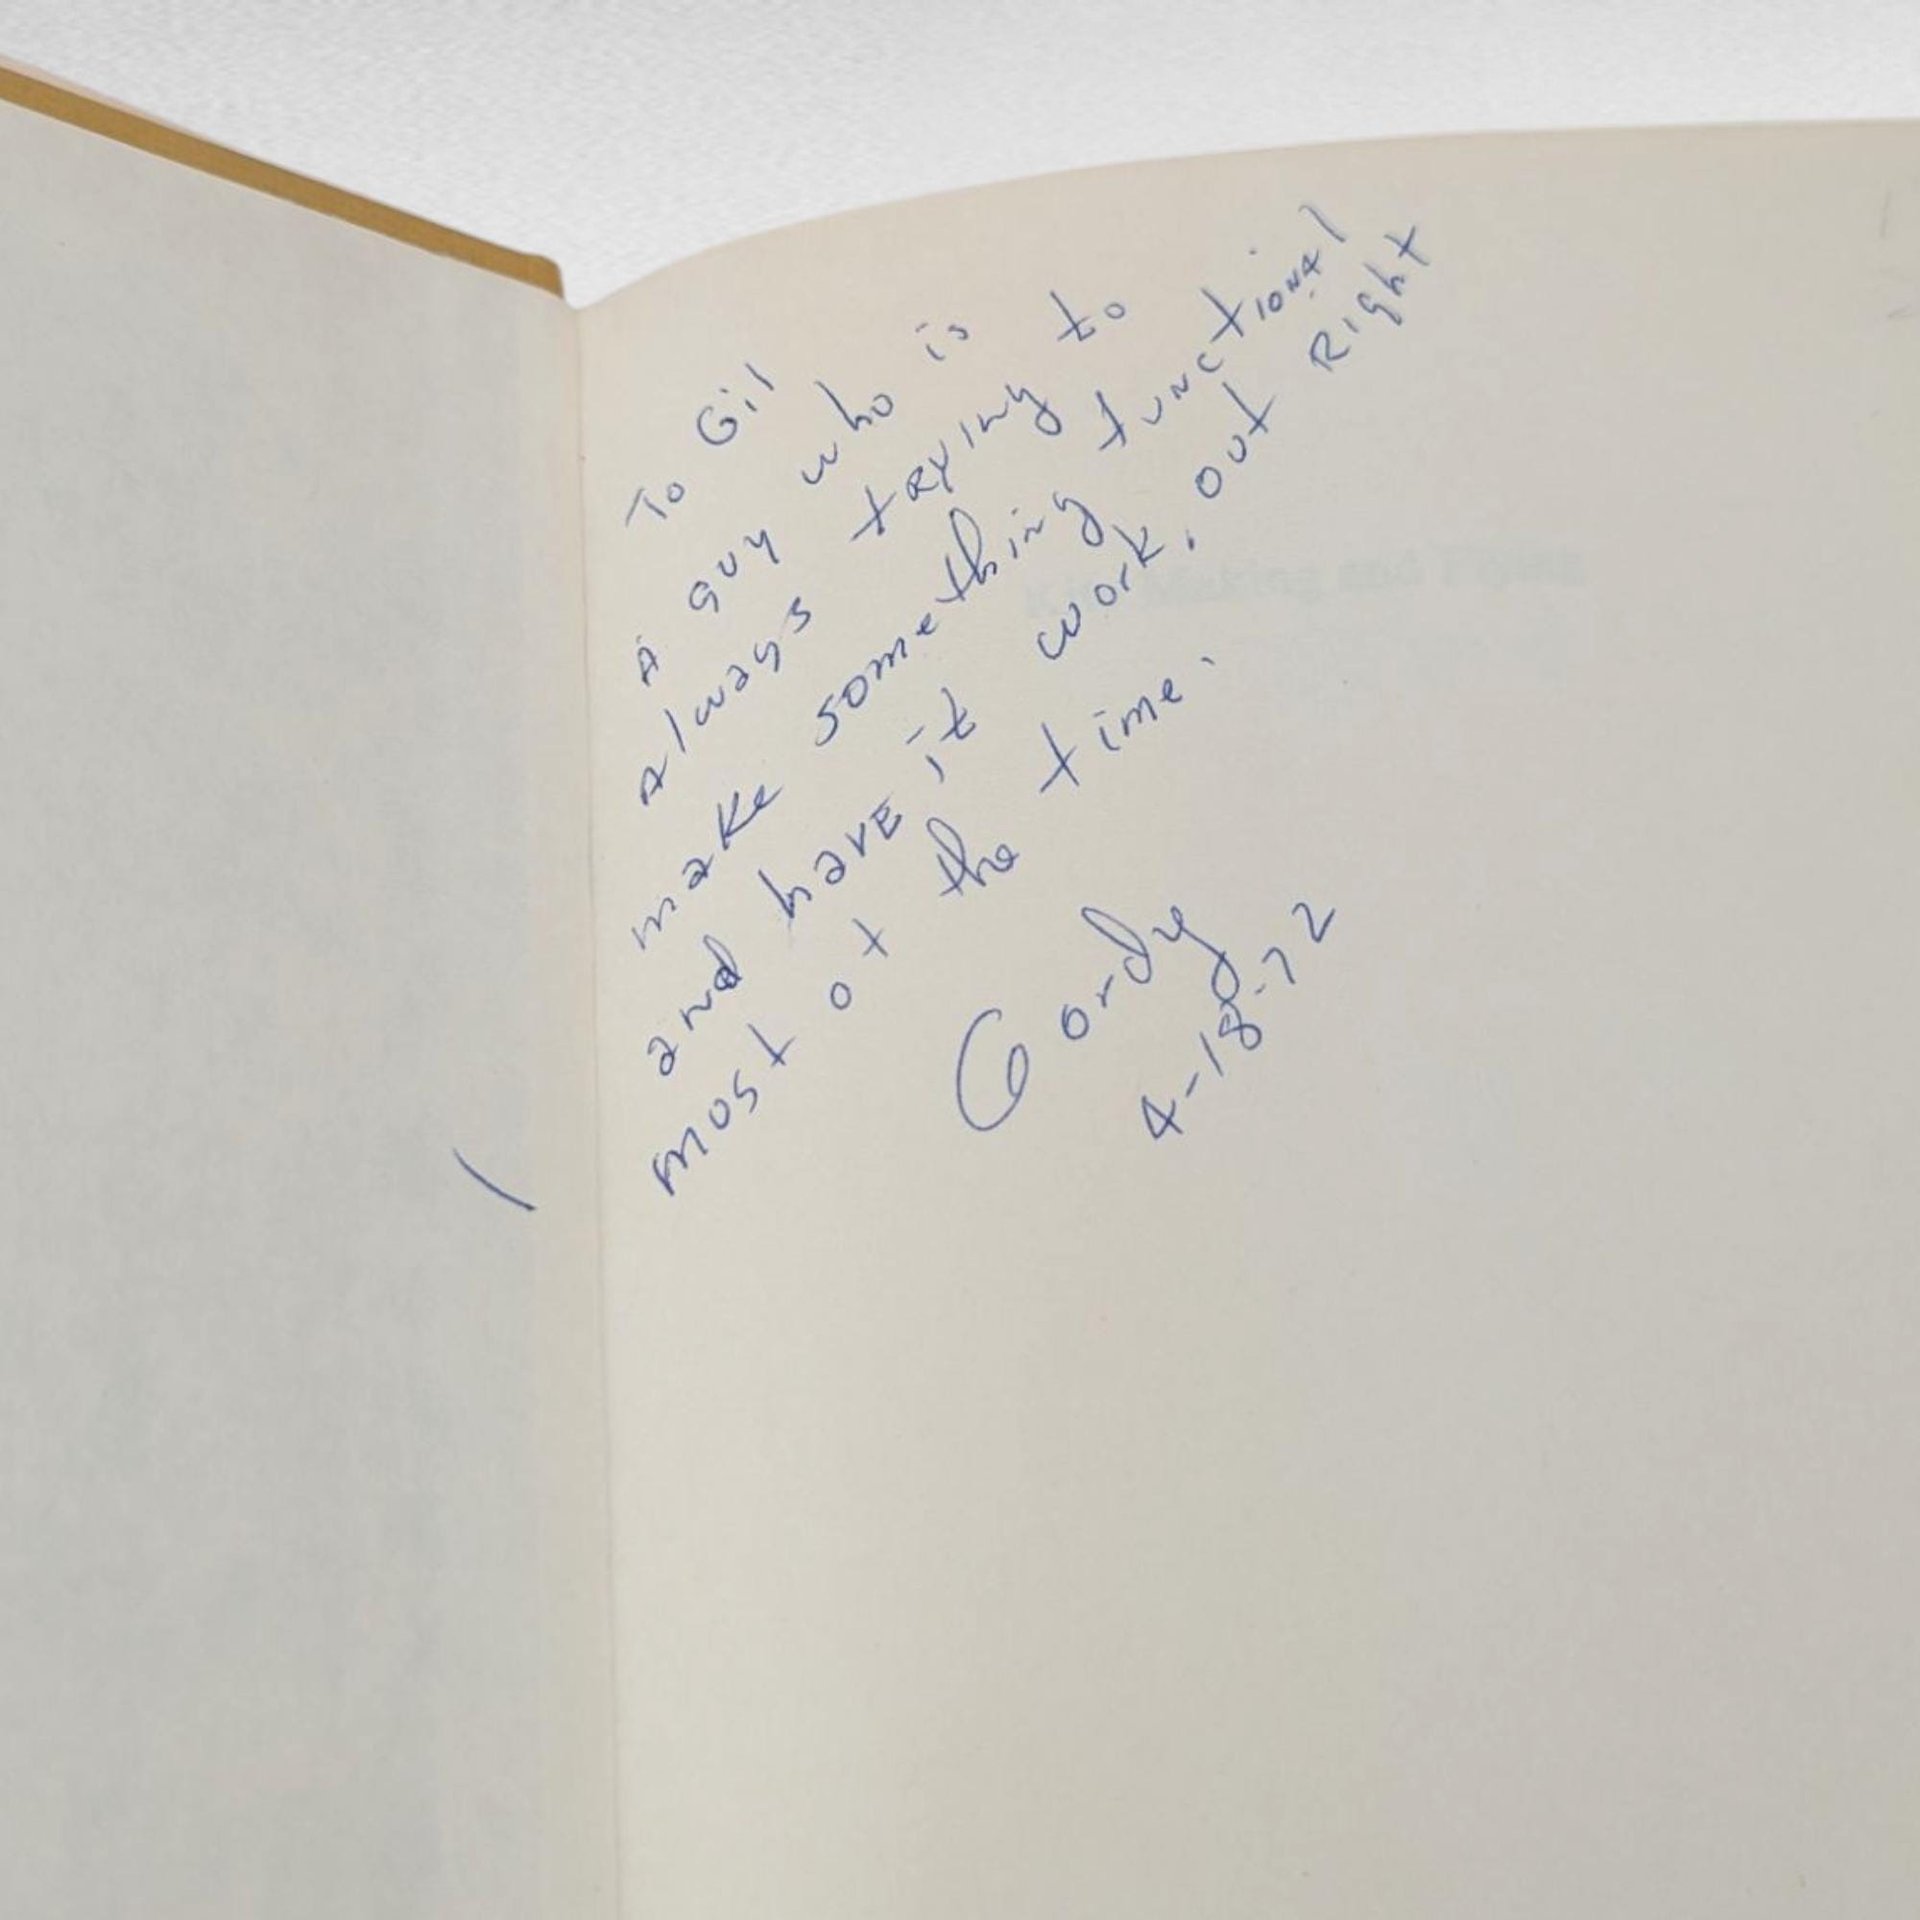 To Gil
A guy who is to
Always trying to
make something functional
and have it work, out Right
most of the time.
Gordy
4-18-72
Making and Flying